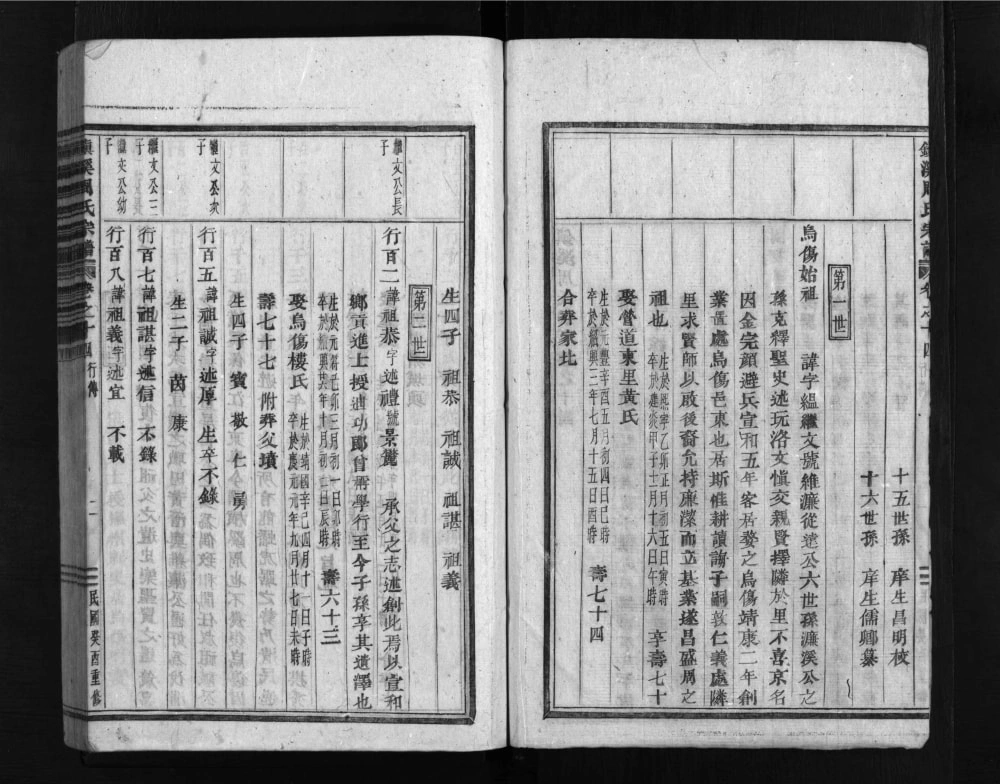 十五世孫 庠生昌明校
十六世孫 庠生儒卿纂
第一世
烏傷始祖 諱字緼繼文號維濂從遠公六世孫濂溪公之
孫克釋聖史述玩洛文慎交親賢擇隣於里不喜京名
因金完顏避兵宣和五年客居婺之烏傷靖康二年創
業置處烏傷邑東也居斯惟耕讀詢子嗣敦仁義處隣
里求賢師以啟後裔允持廉潔而立基業遂昌盛周之
祖也 生於熙寧乙卯正月初五日寅時
卒於建炎甲子十二月十六日午時 享壽七十
娶管道東里黃氏
生於元豐辛酉五月初四日巳時
卒於紹興三年七月十五日酉時 壽七十四
合葬家北
生四子 祖恭 祖誠 祖諶 祖義
第二世
繼文公長子
行百二諱祖恭字述禮號景鸞 承父之志述創此焉以宣和
鄉貢進士授迪功郎曾孱學行至今子孫享其遺澤也
生於元符己卯三月初一日卯時
卒於紹興
年十月初三日辰時 壽六十三
娶烏傷樓氏 生於靖國辛巳四月十一日子時
卒於慶元元年九月廿七日未時
壽七十七附葬父墳
生四子 賓 敬 仁 勇
繼文公次子
行百五諱祖誠字述厚 生卒不錄
生二子 茵 康
繼文公三子
行百七諱祖諶字述信 不錄
繼文公幼子
行百八諱祖義字述宜 不載
周氏宗譜 卷之十四 行傳
二
民國癸酉重修